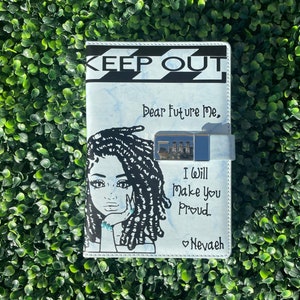 KEEP OUT
Dear Future Me,
I Will
Make You
Proud.
♡ Nevaeh